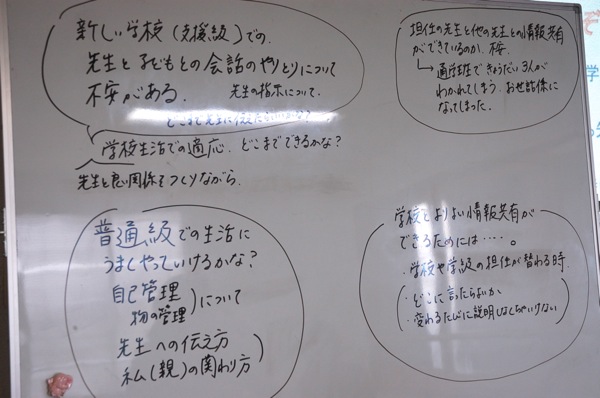 新しい学校（支援級）での
先生と子どもとの会話のやりとりについて
不安がある.
先生の指示について.
学校生活での適応. どこまでできるかな？
先生と良い関係をつくりながら.
担任の先生と他の先生との情報共有
ができているのか. 不安.
→通学班できょうだい3人が
わかれてしまう. お世話係に
なってしまった.
普通級での生活に
うまくやっていけるかな？
自己管理
物の管理 ）について
先生への伝え方
私（親）の関わり方）
学校とよりよい情報共有が
できるためには‥‥。
・学校や学級の担任が替わる時.
・どこに言ったらよいか.
・変わるたびに説明しなくちゃいけない